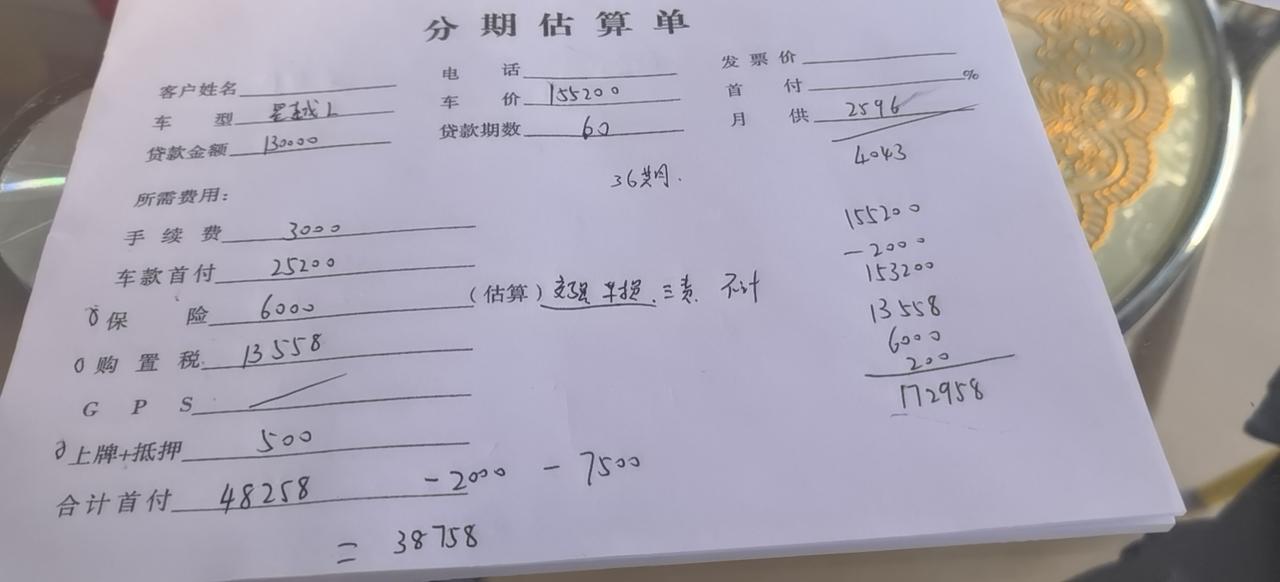 分期估算单
客户姓名 电话 发票价
车型 星越L 车价 155200 首付 %
贷款金额 130000 贷款期数 60 月供 2596
4043
36期.
所需费用:
手续费 3000
车款首付 25200
保险 6000 (估算) 交强 车损、三责、不计
购置税 13558
GPS
上牌+抵押 500
合计首付 48258 -2000 -7500
= 38758
155200
-2000
153200
13558
6000
200
172958